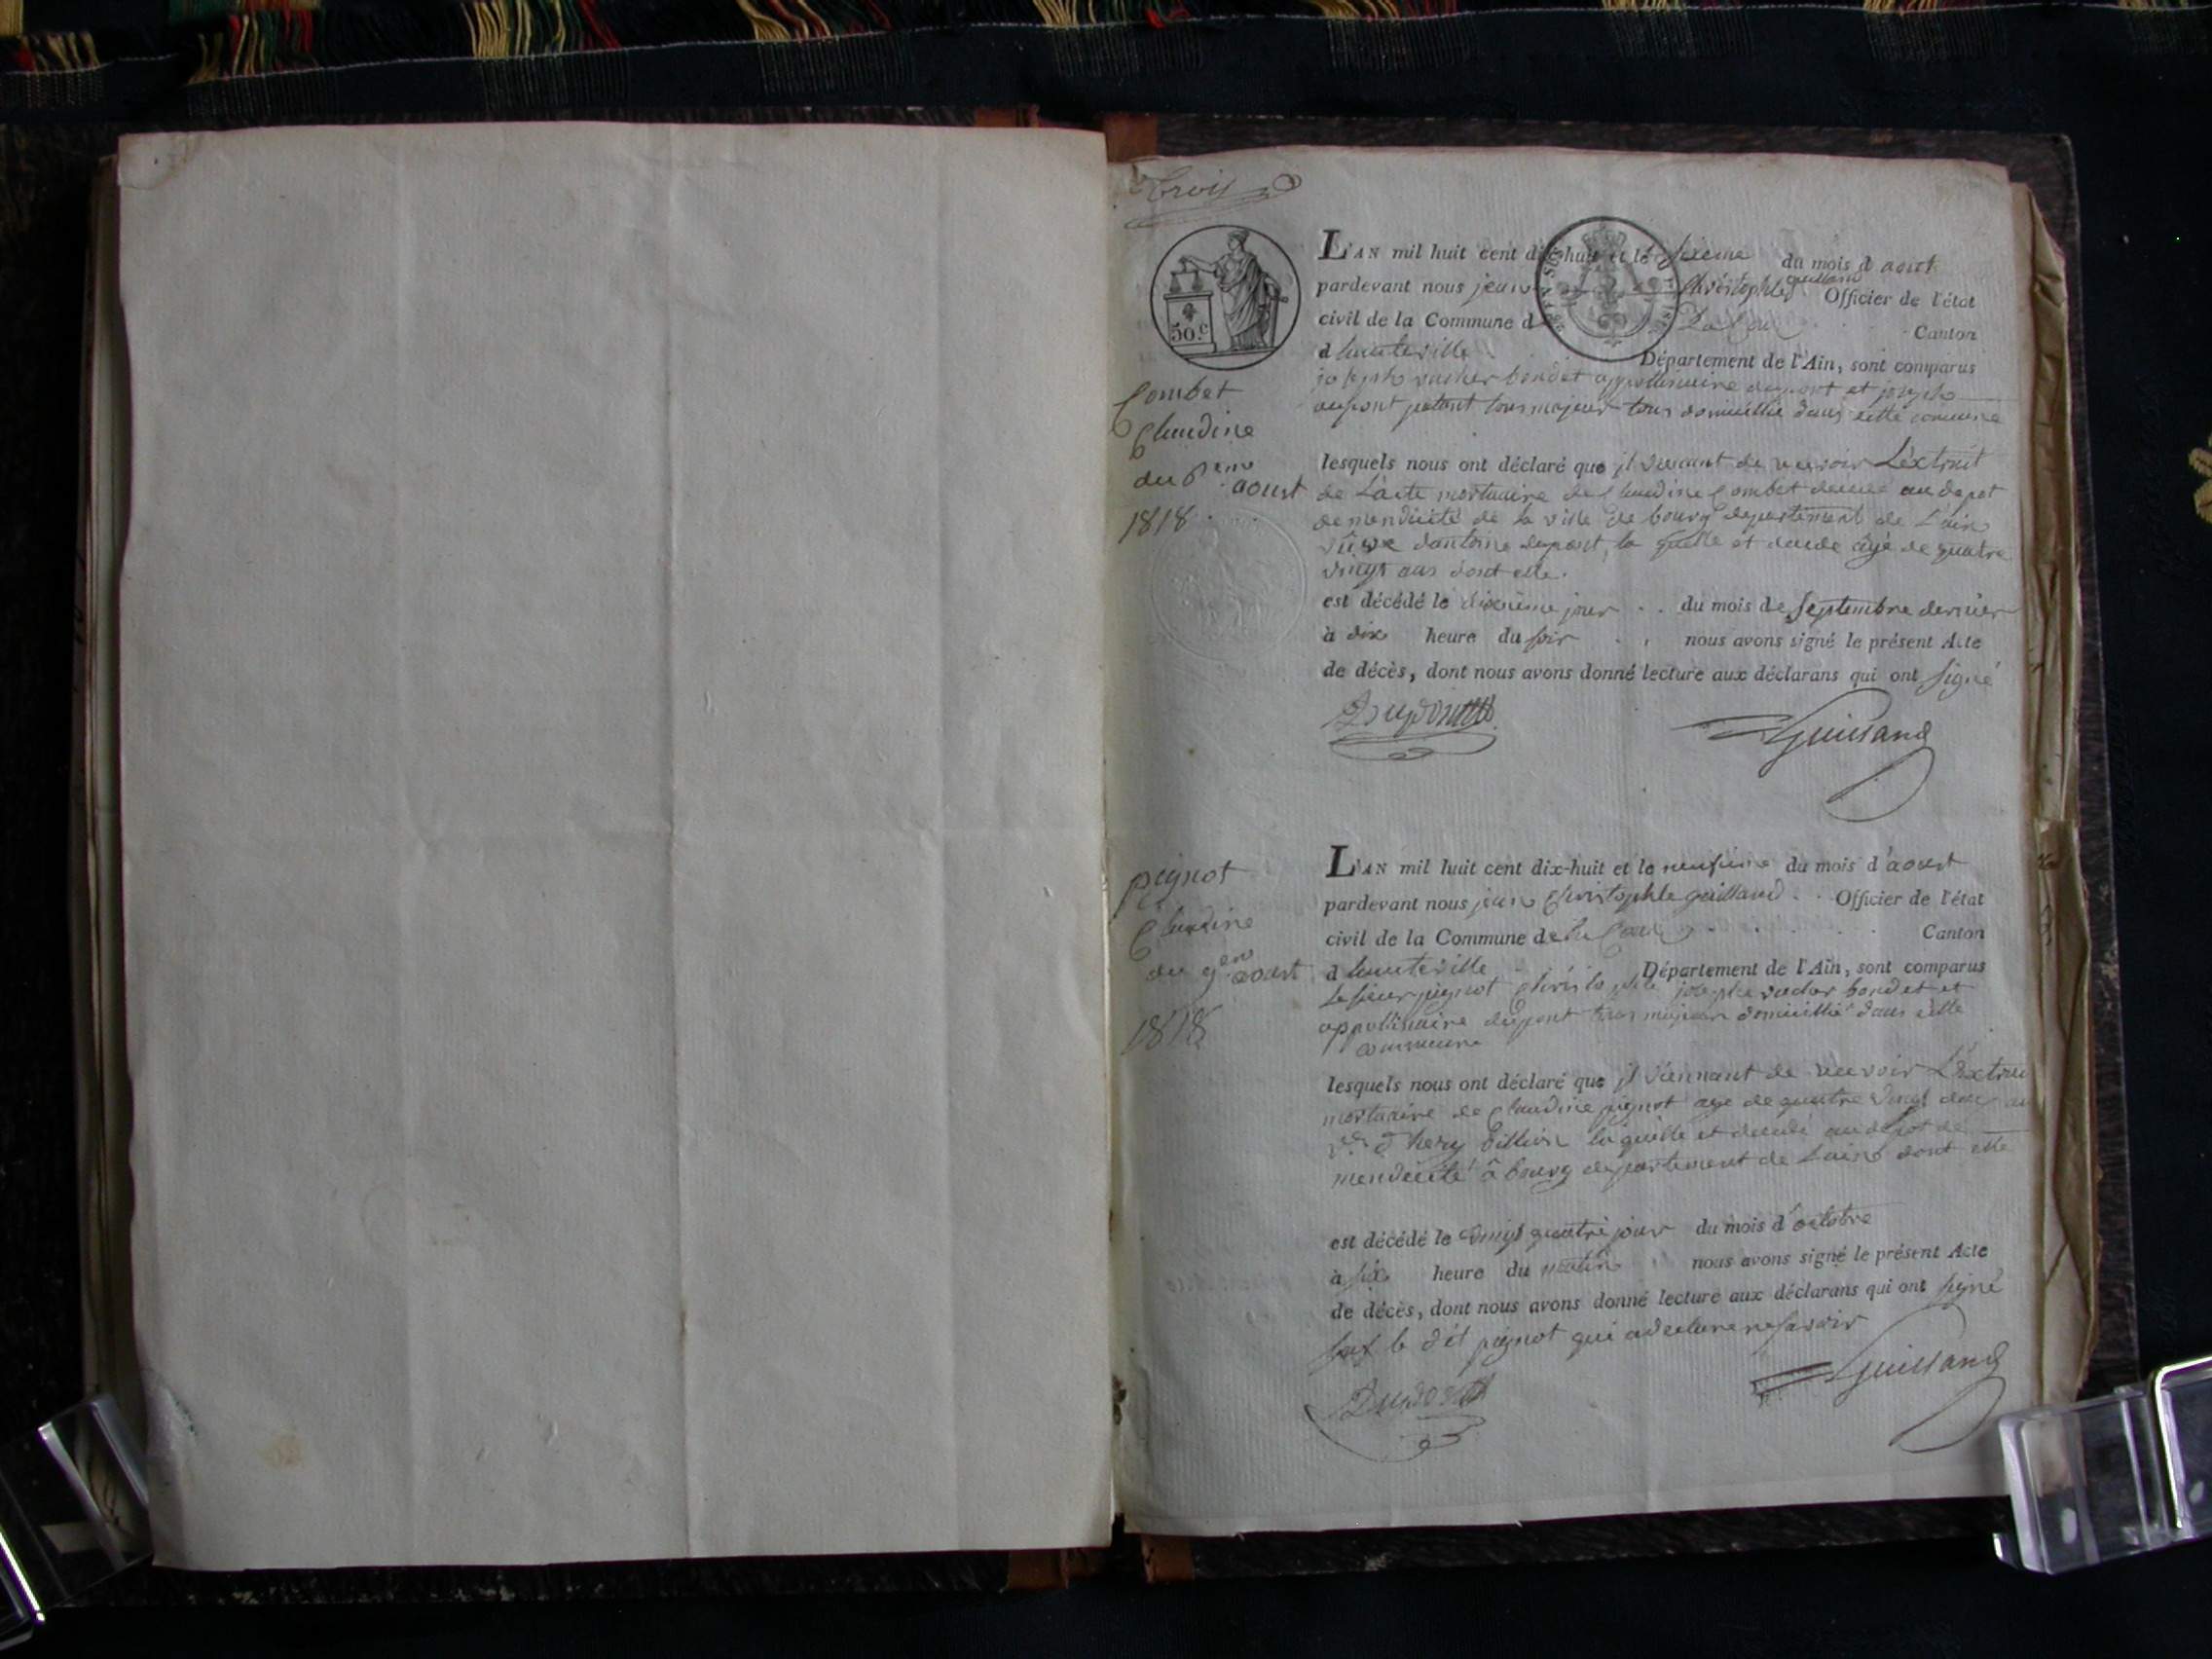 trois
50.c
L'AN mil huit cent dix-huit et le sixeme du mois d aoust
pardevant nous jean Christophle guilland Officier de l'état
civil de la Commune d Canton
d hauteville Département de l'Ain, sont comparus
joseph vucher bondet appollinaire dupont et joseph
dupont tous majeur tous domicillié dans cette comune
Combet
Claudine
du 6eme aoust
1818
lesquels nous ont déclaré que il viennent de recevoir L'extrait
de L'acte mortuaire de Claudine Combet decedé au depot
de mendicité de la ville de bourg departement de L'ain
dantoine dupont, la quelle et decedé âgé de quatre
vingt ans dont elle.
est décédé le dixième jour du mois de Septembre dernier
à dix heure du soir nous avons signé le présent Acte
de décès, dont nous avons donné lecture aux déclarans qui ont signé
Dupont Guilland
L'AN mil huit cent dix-huit et le neufieme du mois d'aoust
pardevant nous jean Christophle guilland Officier de l'état
civil de la Commune de Canton
d hauteville Département de l'Ain, sont comparus
le sieur pignot Christophle joseph vucher bondet et
appollinaire dupont tous majeur domicillié dans cette
commune
pignot
Claudine
du 9eme aoust
1818
lesquels nous ont déclaré que il viennant de recevoir L'extrai
mortuaire de Claudine pignot age de quatre vingt deux an
la quelle et decedé au depot de
mendicité à bourg departement de Lain dont elle
est décédé le vingt quatre jour du mois d'octobre
à six heure du matin nous avons signé le présent Acte
de décès, dont nous avons donné lecture aux déclarans qui ont signé
sauf le dét pignot qui a declare ne savoir
Dupont Guilland